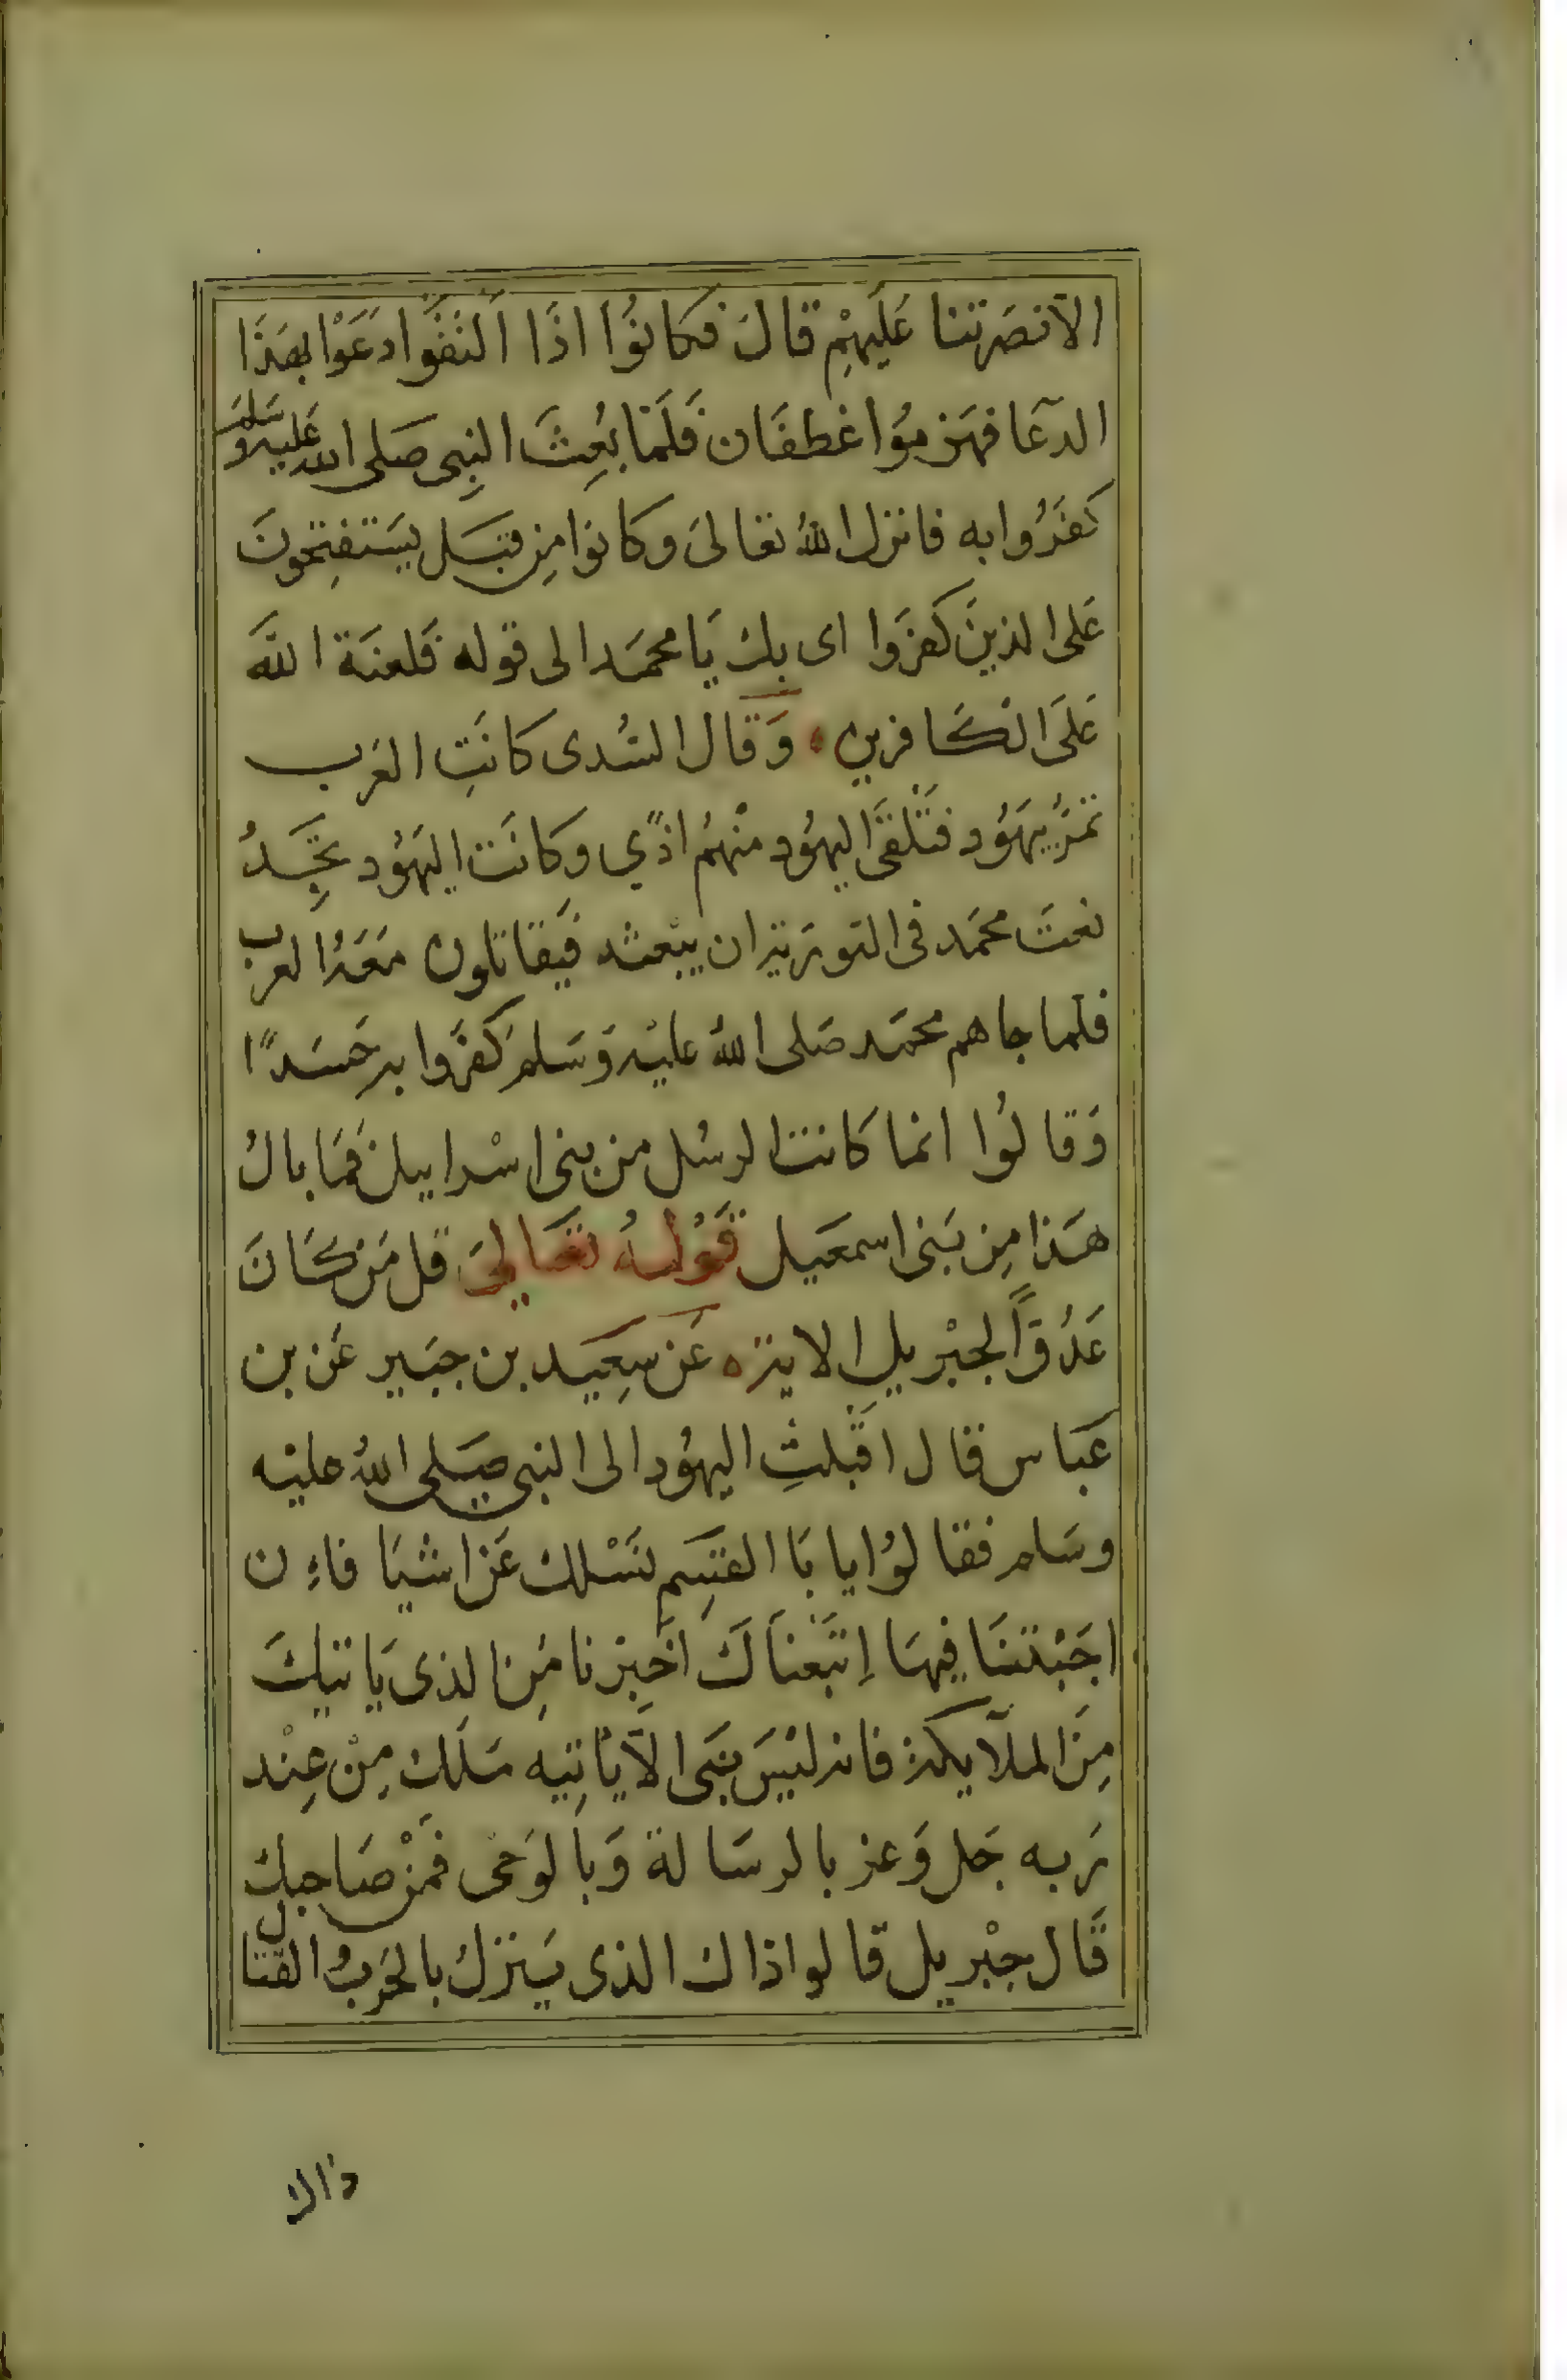 الا نصرتنا عَلَيهِمْ قالَ فكانوُا اذَا اَلتَقَوْا دَعَوْا بهَذَا
الدعَا فهَزموُا غطفَان فَلَمَا بُعِثَ النبِى صَلى الله عَليه وسَلم
كفَرُوا به فانزل اللهُ تعَالىَ وكانوا مِن قبَل يَستَفتِحُونَ
عَلى الذينَ كفَروا اى بك يَا محمَد الى قوله فَلعنَة اللهَ
عَلَى الكَافرين وَقال السُدى كانَتِ العَرب
تمرُّ بيَهُود فتَلقَى اليهُود منْهُم اذًي وكانَت اليَهُود تجِدُ
نعتَ محمَد فى التورية ان يبْعثه فيَقاتلون مَعَهُ العرب
فلما جاهم محمَد صَلى اللهُ عليْه وَسَلم كفَروا به حَسَدًا
وَقالُوا انما كانت الرسُل من بنى اسْراييل فمَا بالُ
هَذا مِن بَنى اسمعَيل قَوْلهُ تعَالىَ قل مَن كَانَ
عَدُوًّا لجبْريلِ الاية عَن سِعَيد بن جبَير عَن بن
عَبَاس قال اقَبلتِ اليهُود الى النبى صَلى اللهُ عليْه
وسَلم فقالوُا يا بَا القسِم نسْلك عَن اشيَا فاءِن
اجَبْتنَا فِيهَا اِتبَعنَاكَ اَخبِرْنا مَن الذى يَاتيكَ
مِنَ الملآيكة فانه ليْسَ نبَى الا يَاتِيه مَلَك مِنْ عِنْد
رَبه جَل وَعز بالرسَالة وَبالوَحْى فمَنْ صَاحبك
قَال جبْريل قالوا ذاك الذى يَنزلُ بالحَرب والقتال
ذاك